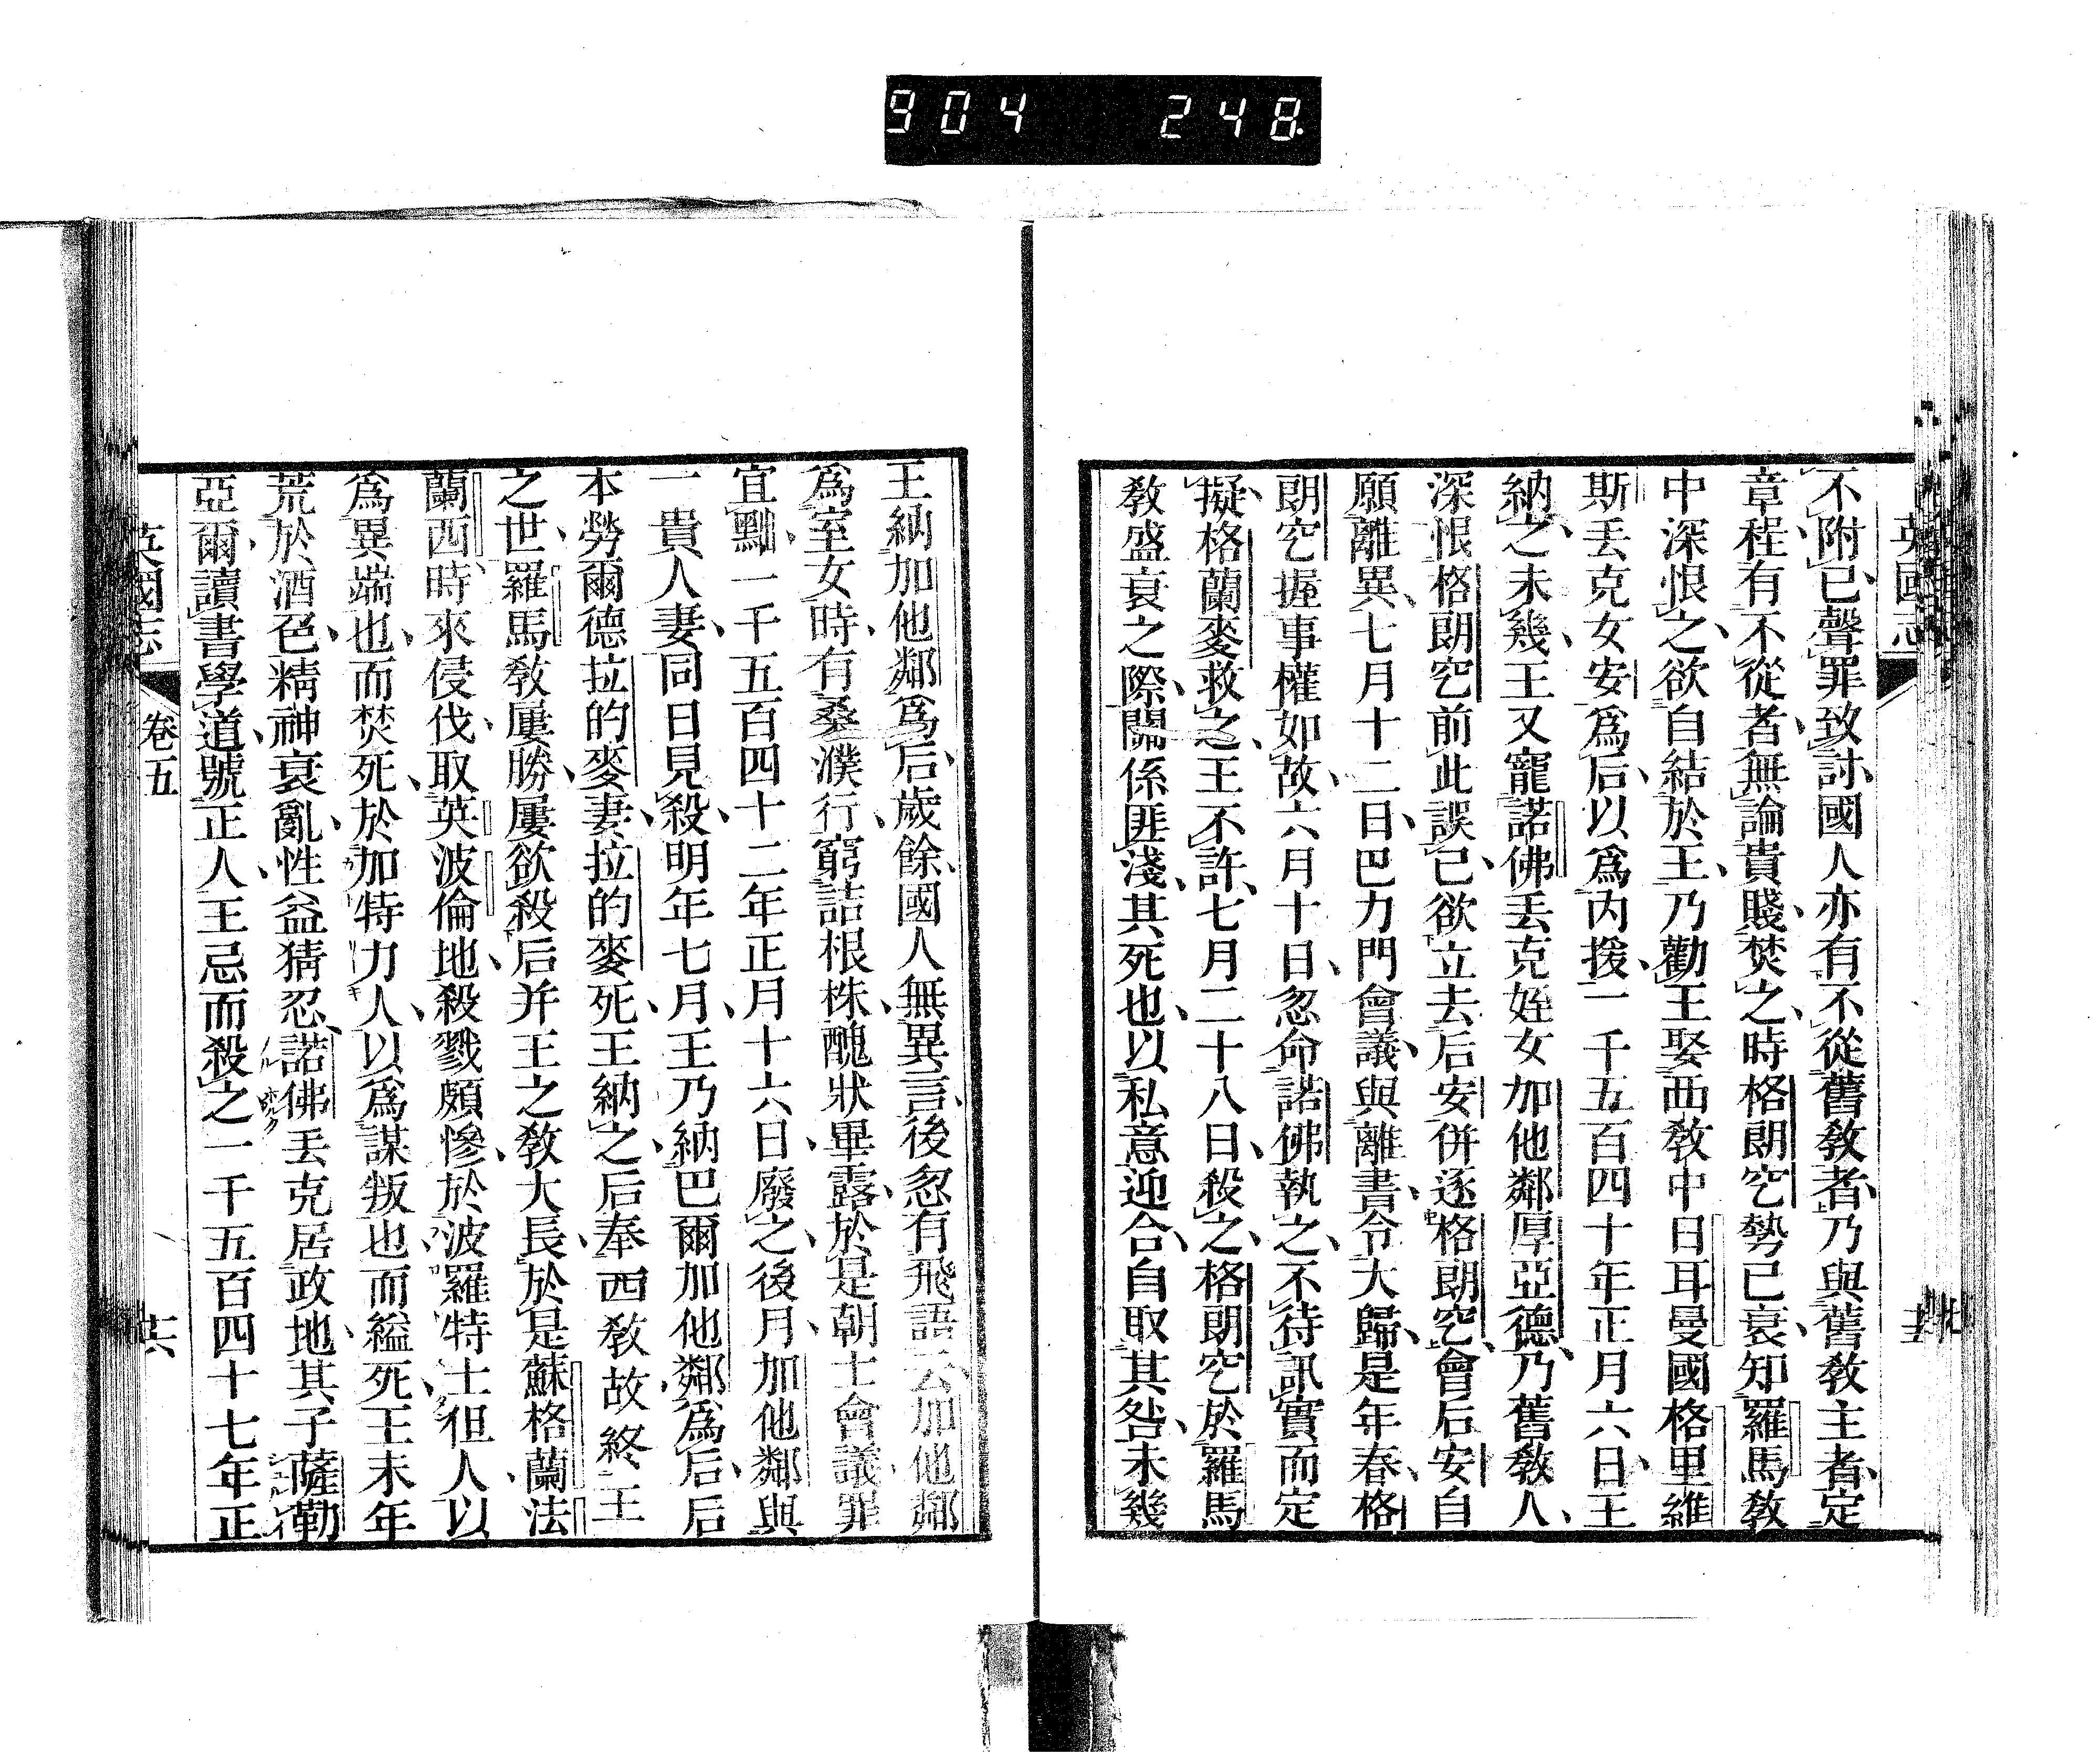 904 248
英國志
不附己聲罪致討國人亦有不從舊敎者乃與舊敎主者定
章程有不從者無論貴賤焚之時格朗空勢已衰知羅馬敎
中深恨之欲自結於王乃勸王娶西敎中日耳曼國格里維
斯丟克女安爲后以爲內援一千五百四十年正月六日王
納之未幾王又寵諾佛丟克姪女加他鄰厚亞德乃舊敎人
深恨格朗空前此誤己欲立去后安併逐格朗空會后安自
願離異七月十二日巴力門會議與離書令大歸是年春格
朗空握事權如故六月十日忽命諾佛執之不待訊實而定
擬格蘭麥救之王不許七月二十八日殺之格朗空於羅馬
敎盛衰之際關係匪淺其死也以私意迎合自取其咎未幾
王納加他鄰爲后歲餘國人無異言後忽有飛語云加他鄰
爲室女時有桑濮行窮詰根株醜狀畢露於是朝士會議罪
宜黜一千五百四十二年正月十六日廢之後月加他鄰與
一貴人妻同日見殺明年七月王乃納巴爾加他鄰爲后后
本勞爾德拉的麥妻拉的麥死王納之后奉西敎故終王
之世羅馬敎屢勝屢欲殺后并王之敎大長於是蘇格蘭法
蘭西時來侵伐取英波倫地殺戮頗慘於波羅特士但人以
爲異端也而焚死於加特力人以爲謀叛也而縊死王末年
荒於酒色精神衰亂性益猜忍諾佛丟克居政地其子薩勒
亞爾讀書學道號正人王忌而殺之一千五百四十七年正
英國志 卷五